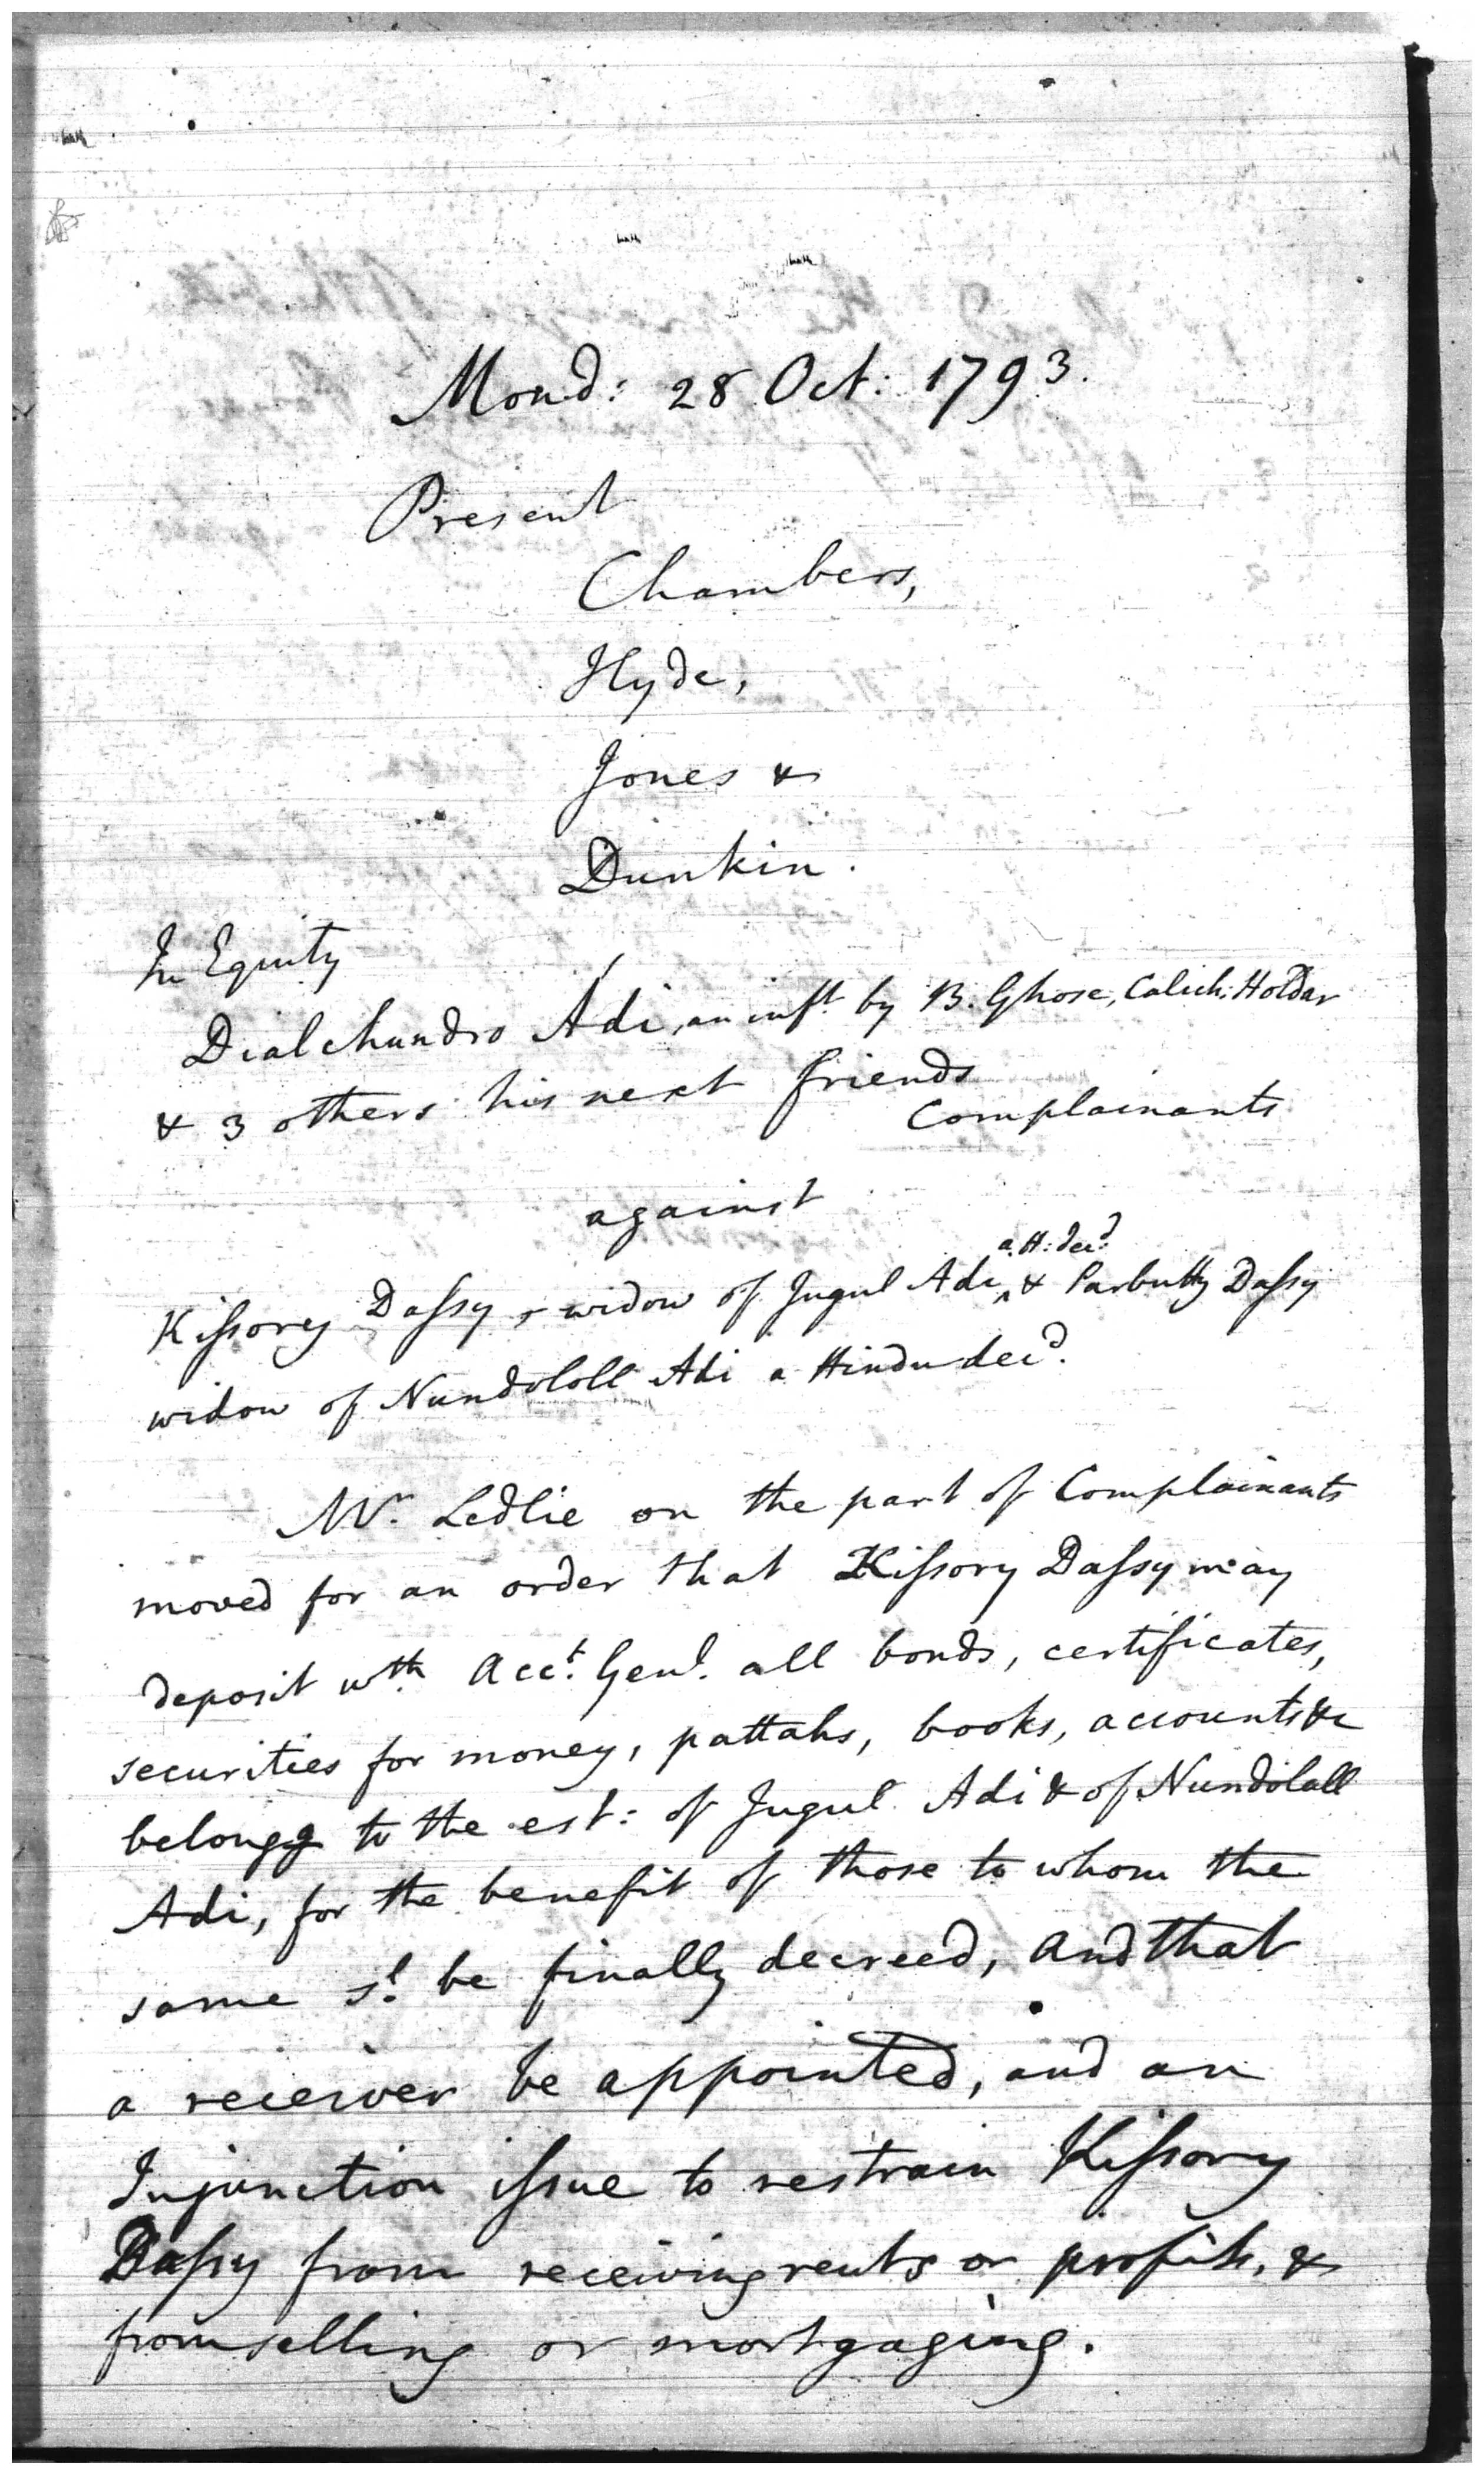 Mond: 28 Oct: 1793.
Present
Chambers,
Hyde,
Jones &
Dunkin.
In Equity
Dialchundro Adi, an inft by B. Ghose, Calich: Holdar
& 3 others his next friends
Complainants
against
a H: decd:
Kissory Dassy, widow of Jugul Adi ^ & Parbutty Dassy
widow of Nundololl Adi a Hindu decd.
Mr. Ledlie on the part of Complainants
moved for an order that Kissory Dassy may
deposit wth. Acct. Genl. all bonds, certificates,
securities for money, pattahs, books, accounts &c
belongg to the est: of Jugul Adi & of Nundolall
Adi, for the benefit of those to whom the
same sd. be finally decreed, and that
a receiver be appointed, and an
Injunction issue to restrain Kissory
Dassy from receiving rents or profits, &
from selling or mortgaging.